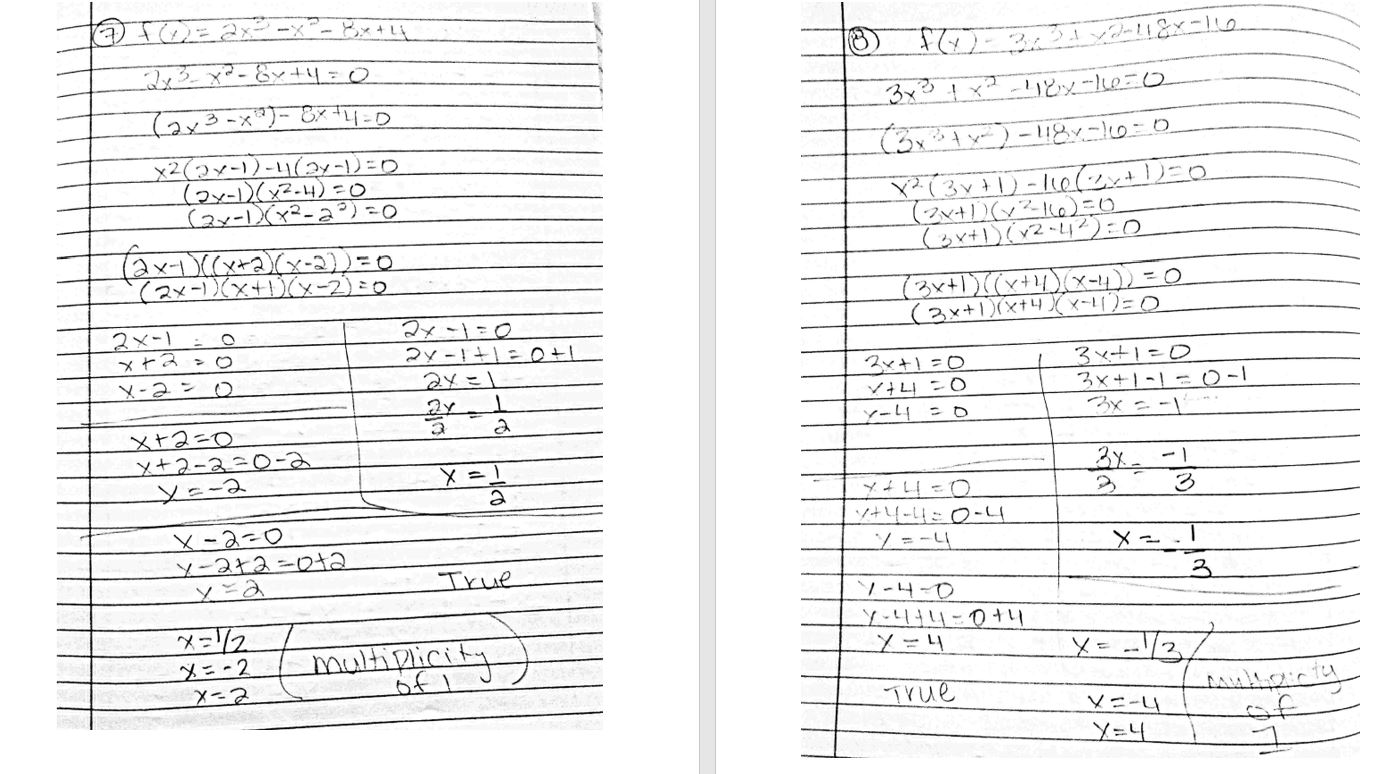 7 f(x) = 2x³ - x² - 8x + 4
2x³ - x² - 8x + 4 = 0
(2x³ - x²) - 8x + 4 = 0
x²(2x-1) - 4(2x-1) = 0
(2x-1)(x²-4) = 0
(2x-1)(x²-2²) = 0
(2x-1)((x+2)(x-2)) = 0
(2x-1)(x+1)(x-2) = 0
2x-1 = 0
x+2 = 0
x-2 = 0
x+2=0
x+2-2=0-2
x=-2
2x-1=0
2x-1+1=0+1
2x=1
2x/2 = 1/2
x = 1/2
x-2=0
x-2+2=0+2
x=2
True
x=1/2
x=-2
x=2
multiplicity
of 1
8 f(x) = 3x³ + x² - 48x - 16
3x³ + x² - 48x - 16 = 0
(3x³ + x²) - 48x - 16 = 0
x²(3x+1) - 16(3x+1) = 0
(3x+1)(x²-16) = 0
(3x+1)(x²-4²) = 0
(3x+1)((x+4)(x-4)) = 0
(3x+1)(x+4)(x-4) = 0
3x+1=0
x+4=0
x-4=0
x+4=0
x+4-4=0-4
x=-4
3x+1=0
3x+1-1=0-1
3x=-1
3x/3 = -1/3
x = -1/3
x-4=0
x-4+4=0+4
x=4
True
x=-1/3
x=-4
x=4
multiplicity
of
1